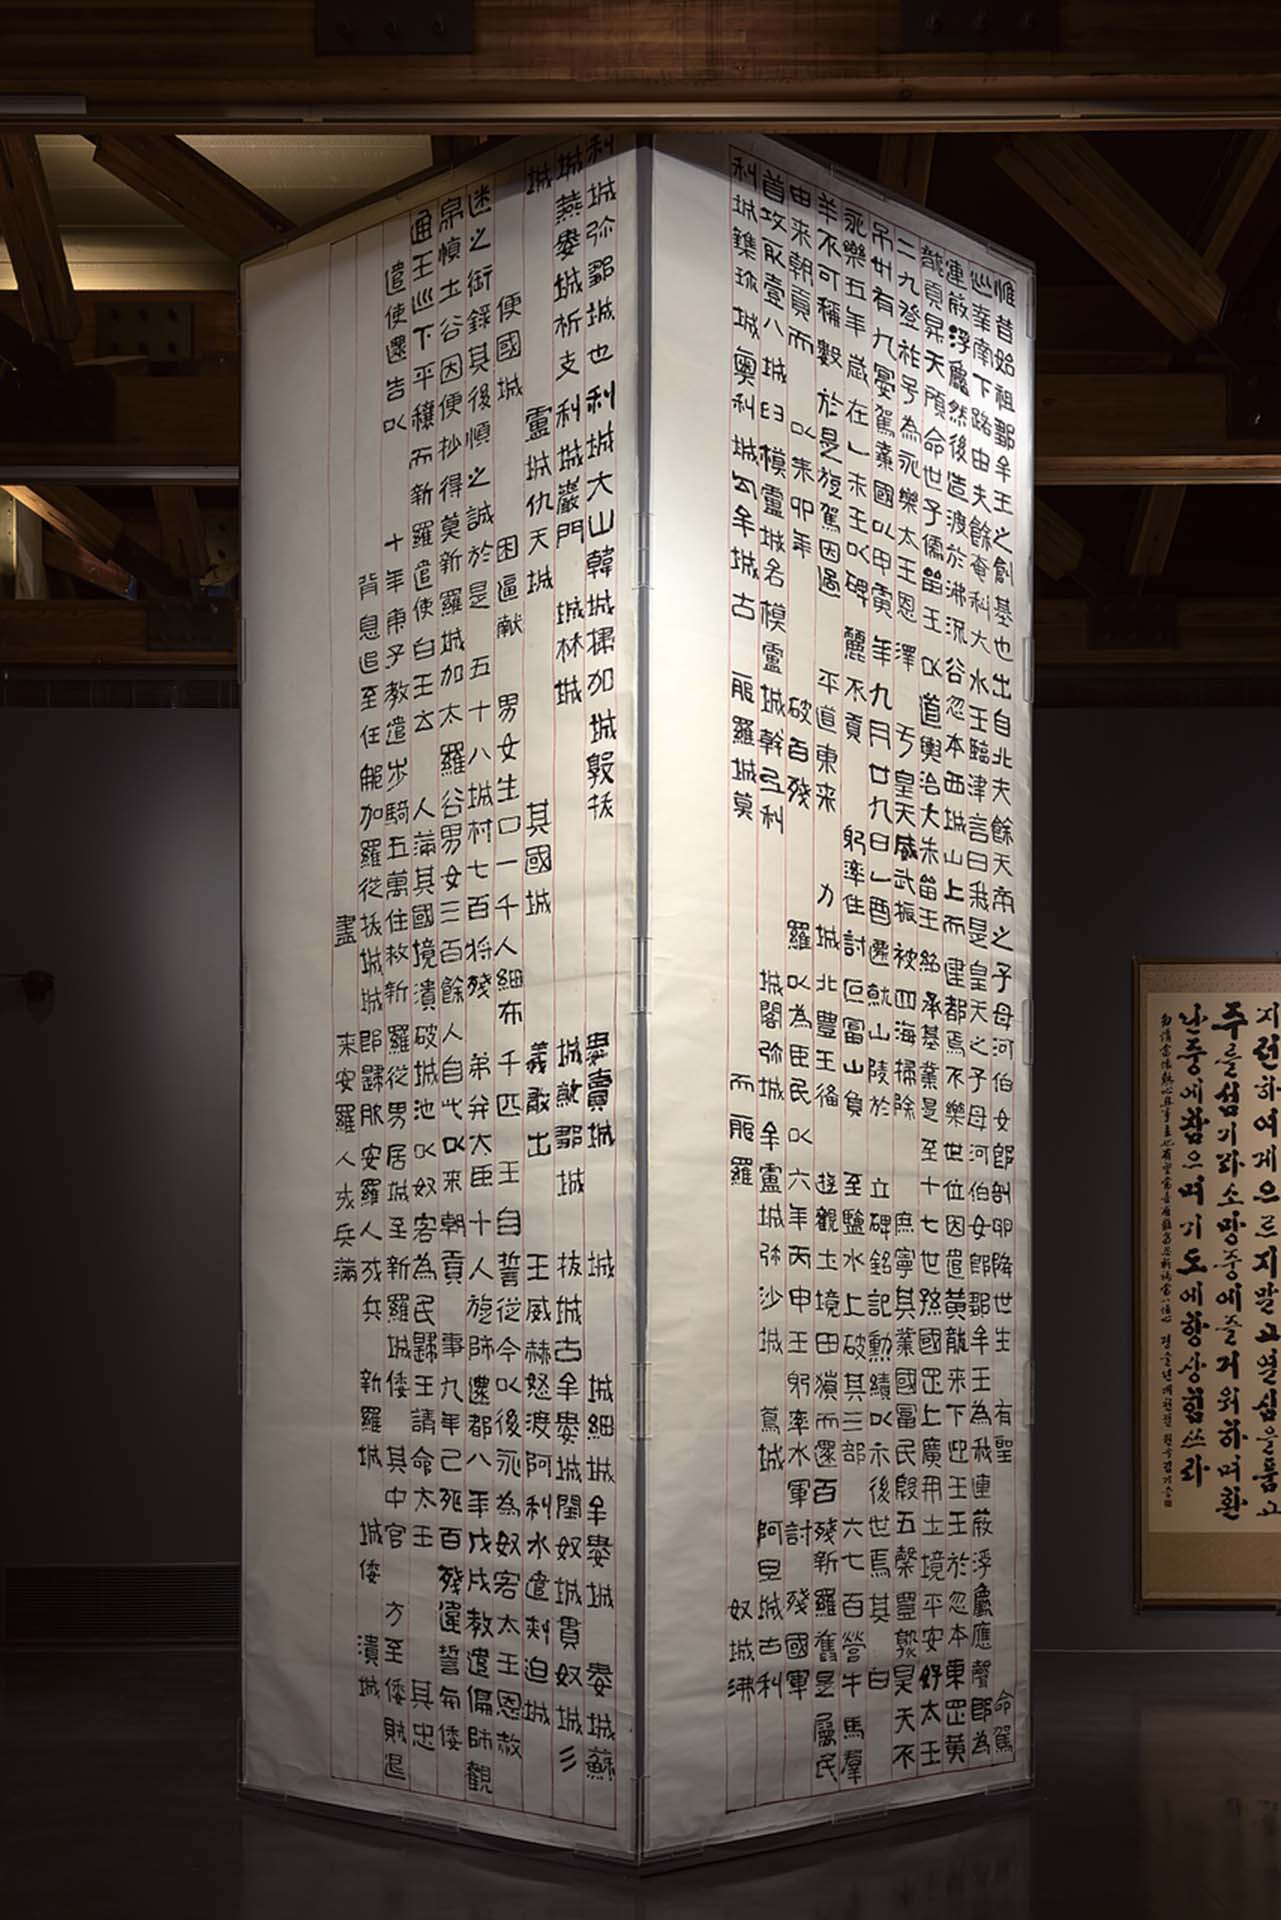 惟昔始祖鄒牟王之創基也出自北夫餘天帝之子母河伯女郎剖卵降世生 有聖 命駕
巡幸南下路由夫餘奄利大水王臨津言曰我是皇天之子母河伯女郎鄒牟王為我連葭浮龜應聲即為
連葭浮龜然後造渡於沸流谷忽本西城山上而建都焉不樂世位因遣黃龍来下迎王王於忽本東罡黃
龍負昇天顧命世子儒留王以道輿治大朱留王紹承基業是至十七世孫國罡上廣開土境平安好太王
二九登祚号為永樂太王恩澤 于皇天威武振被四海掃除 庶寧其業國富民殷五穀豐熟昊天不
弔卅有九宴駕棄國以甲寅年九月廿九日乙酉遷就山陵於 立碑銘記勳績以示後世焉其 曰
永樂五年歲在乙未王以碑麗不貢 躬率住討叵富山負 至鹽水上破其三部 六七百營牛馬羣
羊不可稱數於是旋駕因過 平道東来 力城北豐王備 遊觀土境田獵而還百殘新羅舊是屬民
由来朝貢而 以耒卯年 破百殘 羅以為臣民以六年丙申王躬率水軍討 殘國軍
首攻取壹八城臼模盧城名模盧城幹弖利 城閣弥城牟盧城弥沙城 蔦城 阿旦城古利
利城 珍城奧利城勾牟城古 羅城莫 而 羅 奴城沸
利城弥鄒城也利城大山韓城掃加城敦拔 婁賣城 城 城細城牟婁城 婁城蘇
城燕婁城析支利城巖門 城林城 城 鄒城 拔城古牟婁城閏奴城貫奴城彡
城 盧城仇天城 其國城 義敢出 王威赫怒渡阿利水遣刺迫城
便國城 困逼献 男女生口一千人細布 千匹 王自誓從今以後永為奴客太王恩赦
迷之 錄其後順之誠於是 五十八城村七百将殘 弟并大臣十人旋師還都八年戊戌教遣偏師觀
帛慎土谷因便抄得莫新羅城加太羅谷男女三百餘人自此以来朝貢 事九年己 百殘違誓 倭
通王巡下平穰而新羅遣使白王云 人満其國境潰破城池以奴客為民歸王請命太王 其忠
遣使還告以 十年庚子教遣歩騎五萬住救新羅從男居城至新羅城倭 其中官 方至倭賊退
背息追至任那加羅從拔城城即歸服安羅人戍兵 新羅城 城倭 潰城
盡 来安羅人戍兵満
지런하여게으르지말고열심을품고
주를섬기라소망중에즐거워하며환
난중에참으며기도에항상힘쓰라